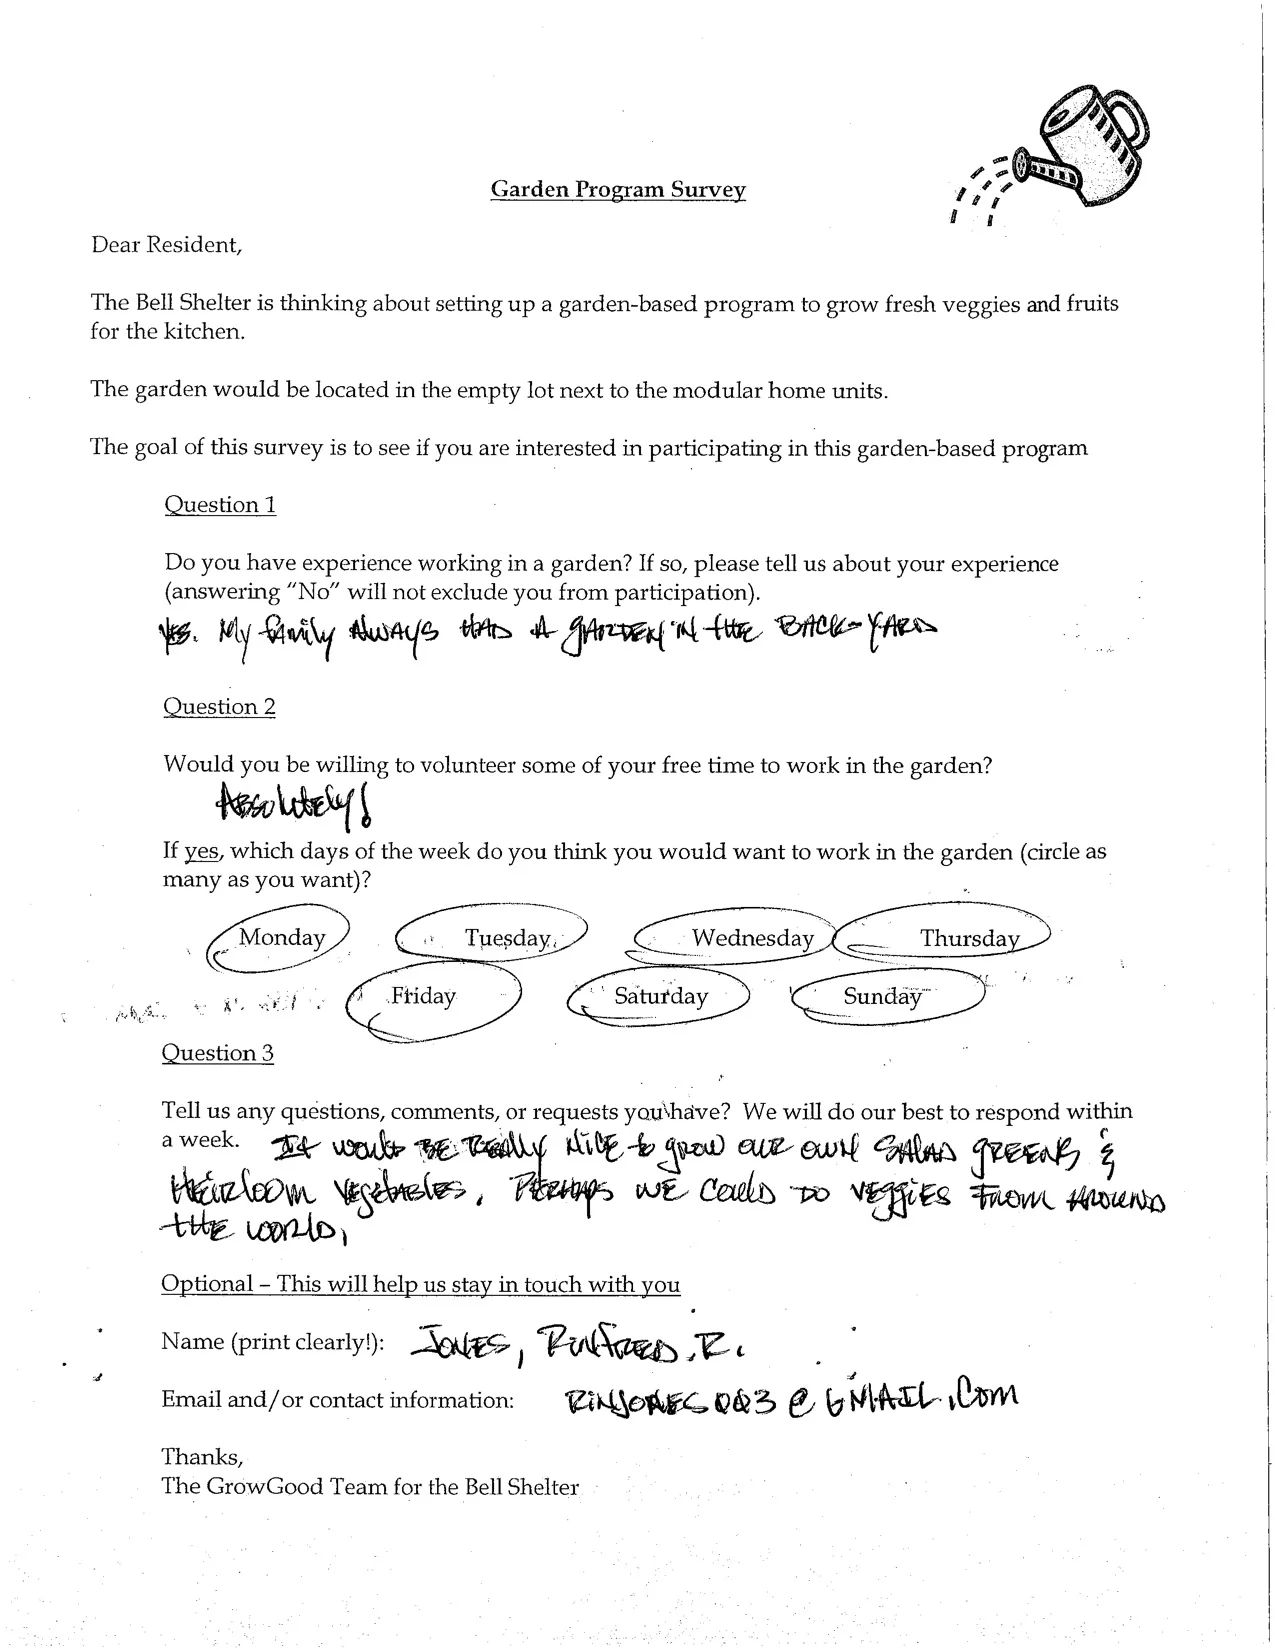 Garden Program Survey
Dear Resident,
The Bell Shelter is thinking about setting up a garden-based program to grow fresh veggies and fruits
for the kitchen.
The garden would be located in the empty lot next to the modular home units.
The goal of this survey is to see if you are interested in participating in this garden-based program
Question 1
Do you have experience working in a garden? If so, please tell us about your experience
(answering "No" will not exclude you from participation).
Yes. My family always had a garden in the back-yard
Question 2
Would you be willing to volunteer some of your free time to work in the garden?
Absolutely!
If yes, which days of the week do you think you would want to work in the garden (circle as
many as you want)?
Monday Tuesday Wednesday Thursday
Friday Saturday Sunday
Question 3
Tell us any questions, comments, or requests you have? We will do our best to respond within
a week. It would be really nice to grow our own salad greens &
heirloom vegetables. Perhaps we could do veggies from around
the world.
Optional – This will help us stay in touch with you
Name (print clearly!): Jones, Rinfred, R.
Email and/or contact information: @GMAIL.com
Thanks,
The GrowGood Team for the Bell Shelter